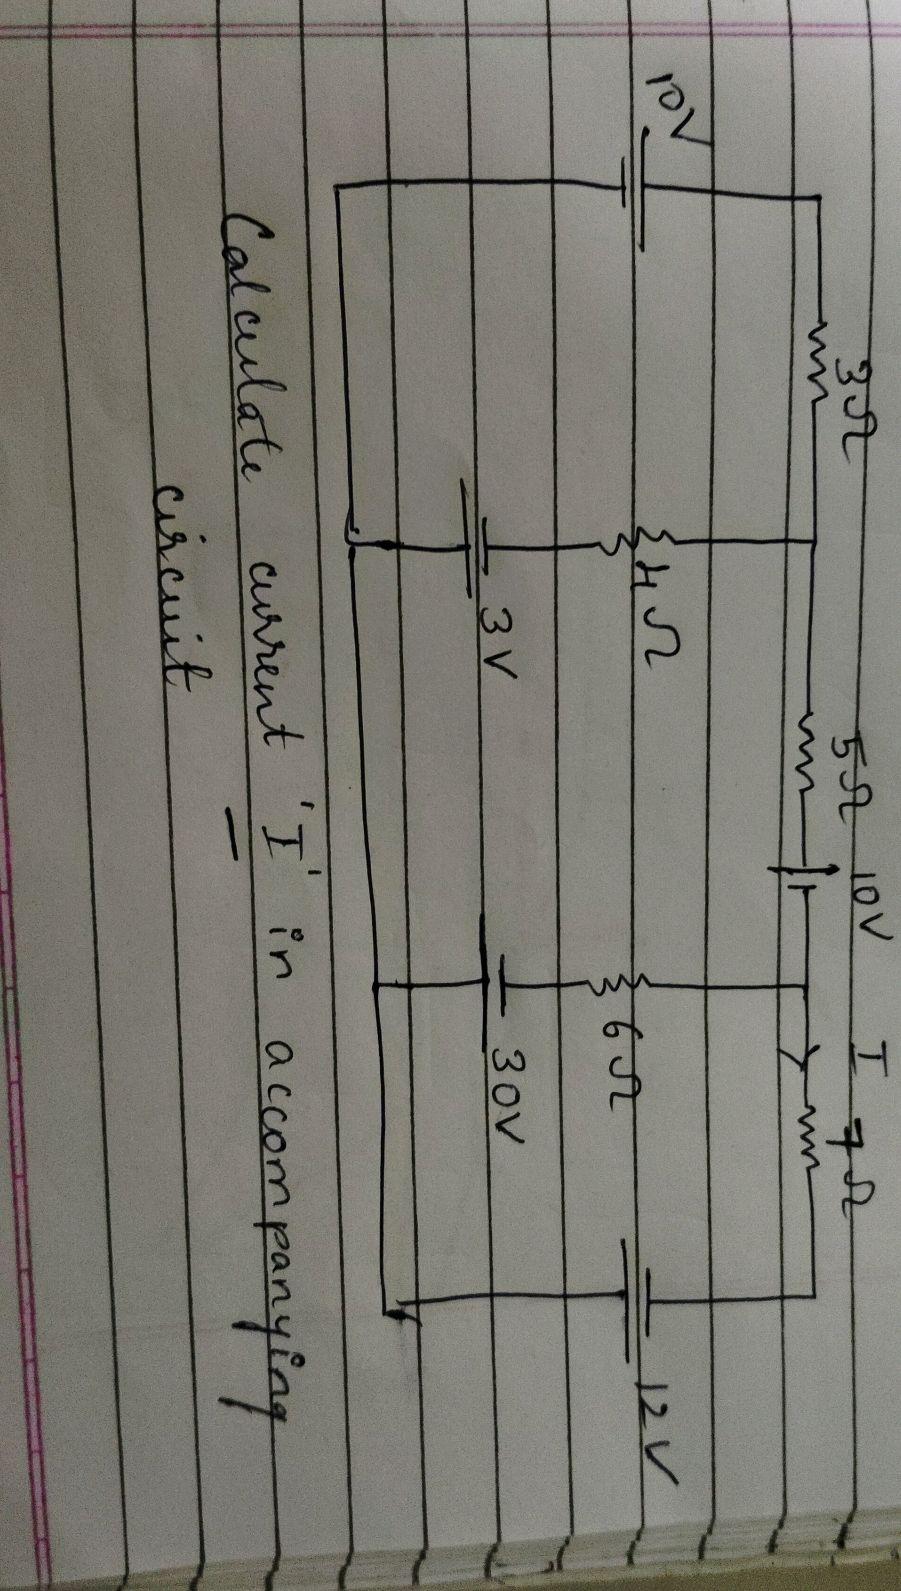 3Ω 5Ω 10V I 7Ω
10V 4Ω 6Ω 12V
3V 30V
Calculate current 'I' in accompanying
circuit